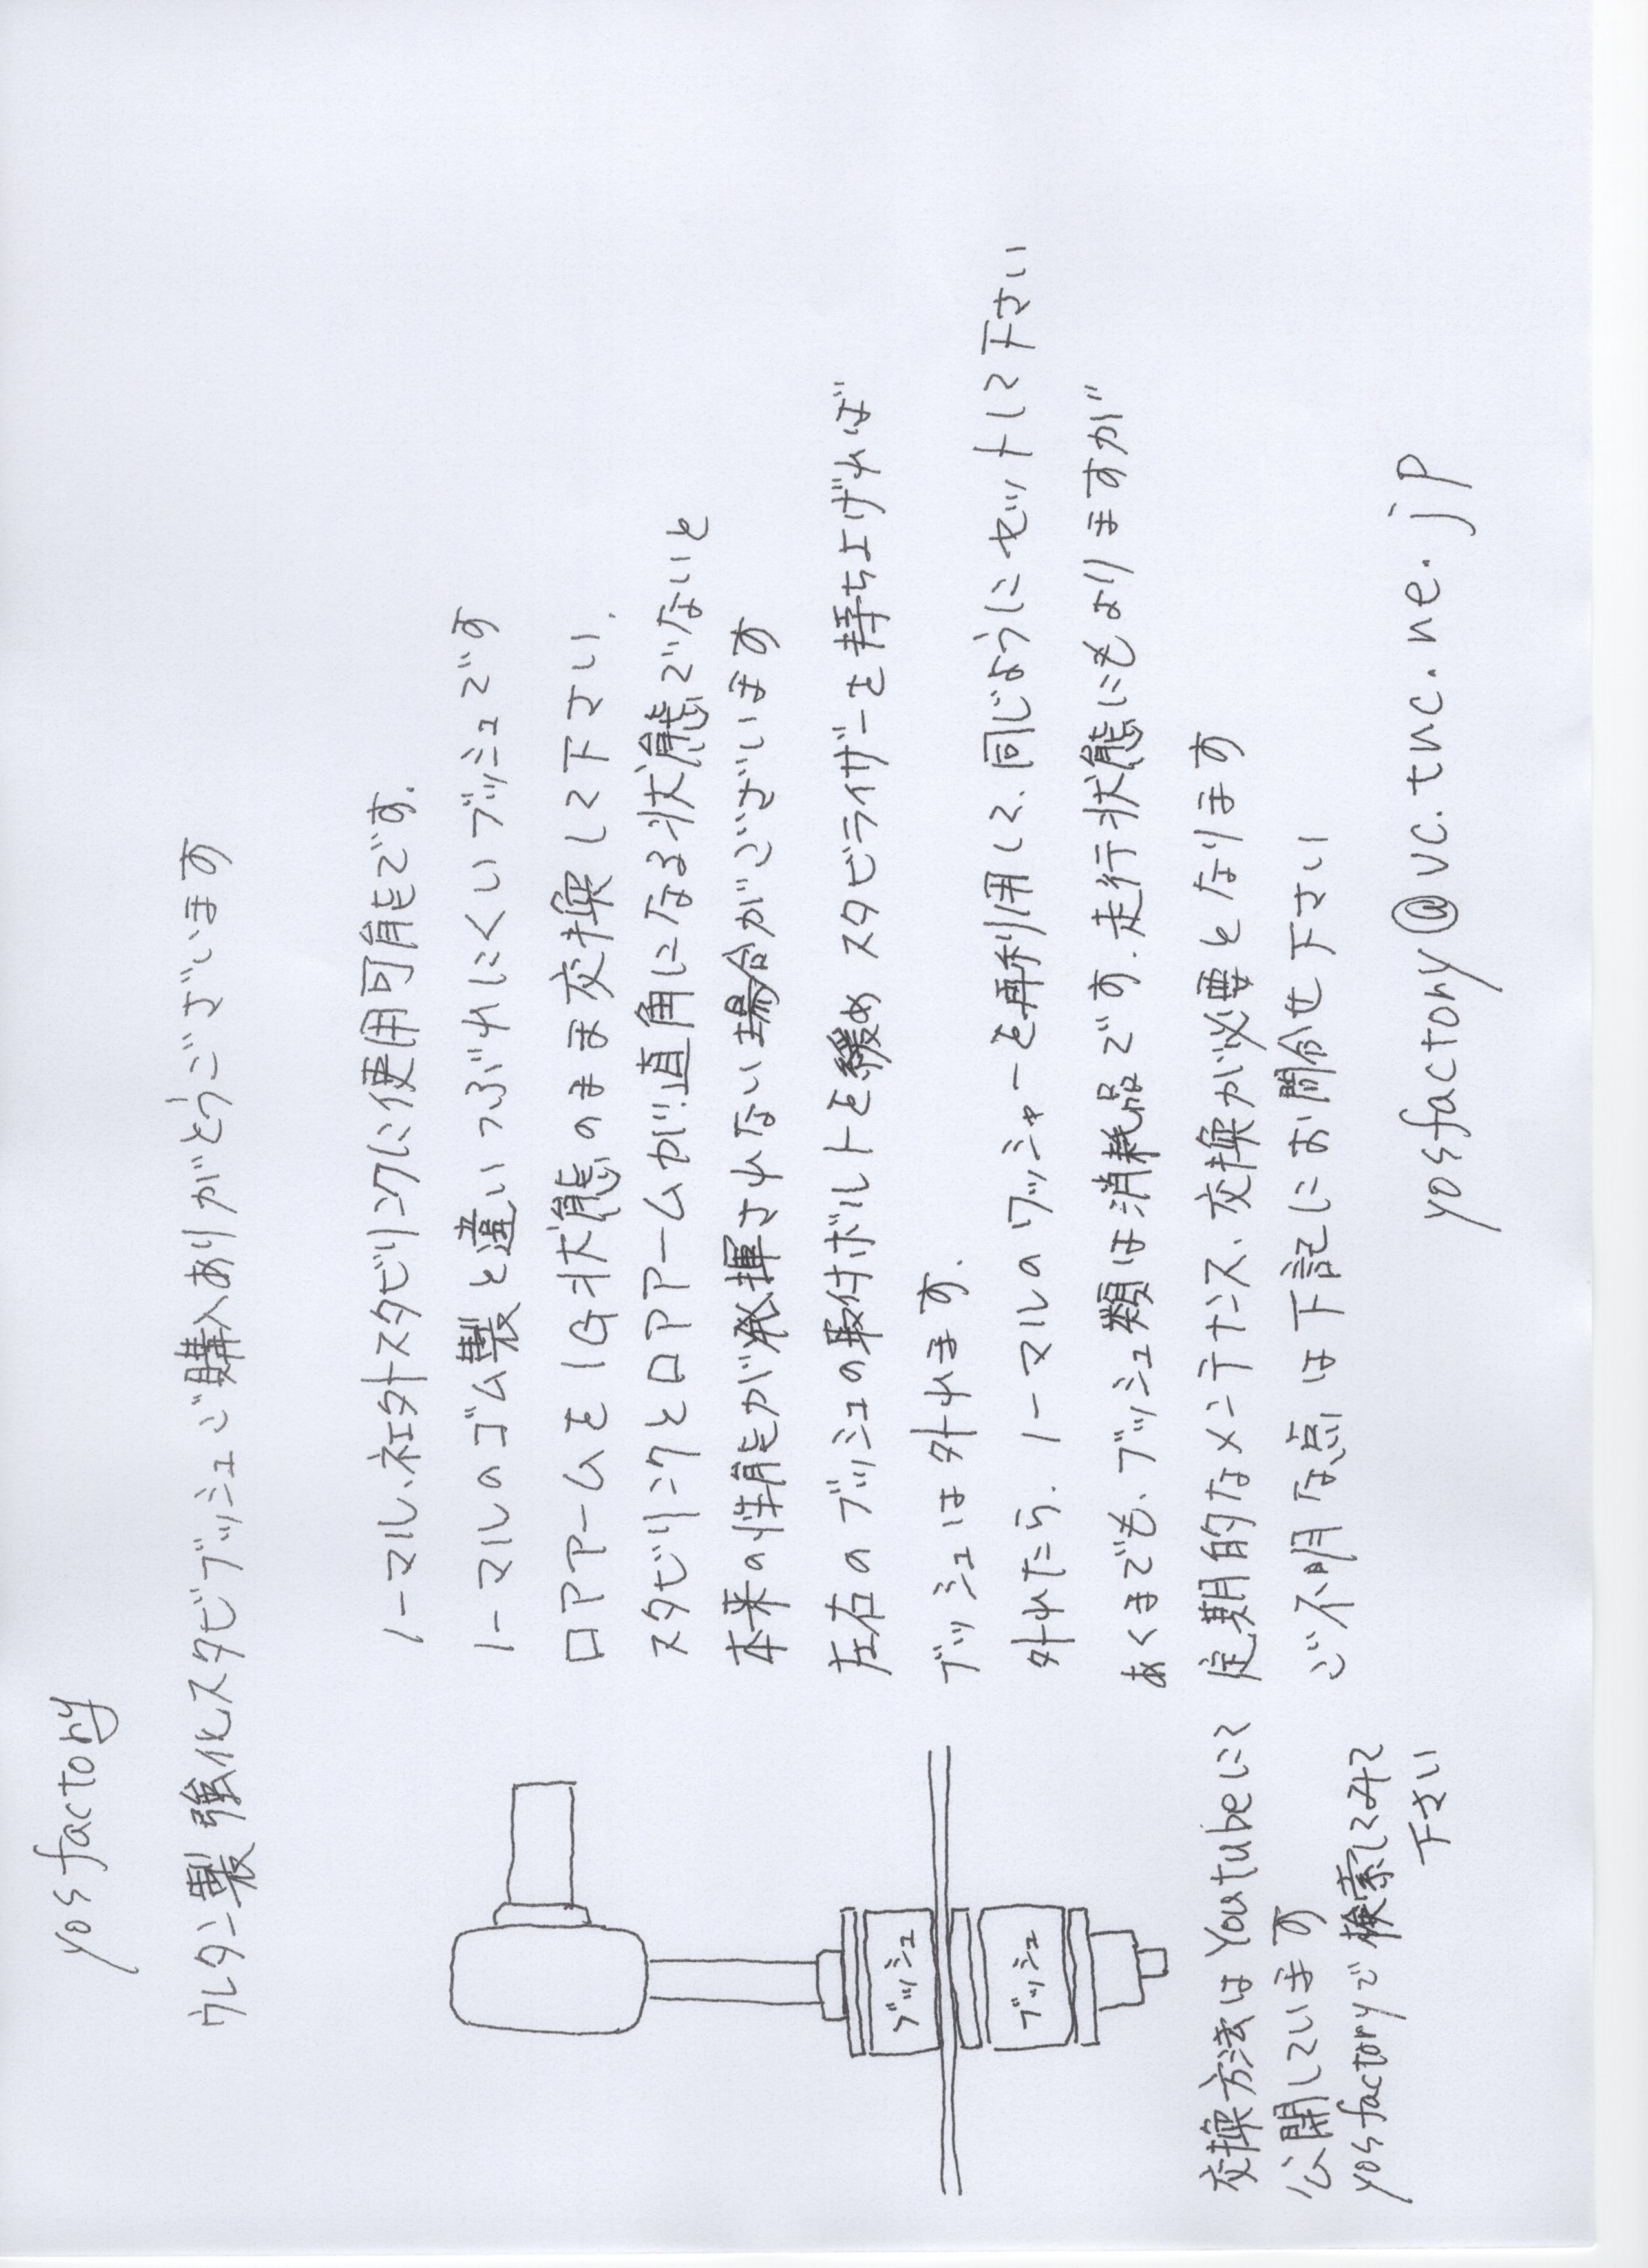 yosfactory
ウレタン製 強化スタビブッシュご購入ありがとうございます
ノーマル、社外スタビリンクに使用可能です.
ノーマルのゴム製と違いつぶれにくいブッシュです
ロアアームを1G状態のまま交換して下さい.
スタビリンクとロアアームが直角になる状態でないと
本来の性能が発揮されない場合がございます
左右のブッシュの取付ボルトを緩め スタビライザーを持ち上げれば
ブッシュは外れます.
外れたら.ノーマルのワッシャーを再利用して、同じようにセットして下さい
あくまでも、ブッシュ類は消耗品です.走行状態にもよりますが
定期的なメンテナンス、交換が必要となります
ご不明な点は下記にお問合せ下さい
yosfactory@vc.tnc.ne.jp
ブッシュ
ブッシュ
交換方法はYoutubeにて
公開しています
yosfactoryで検索してみて
下さい